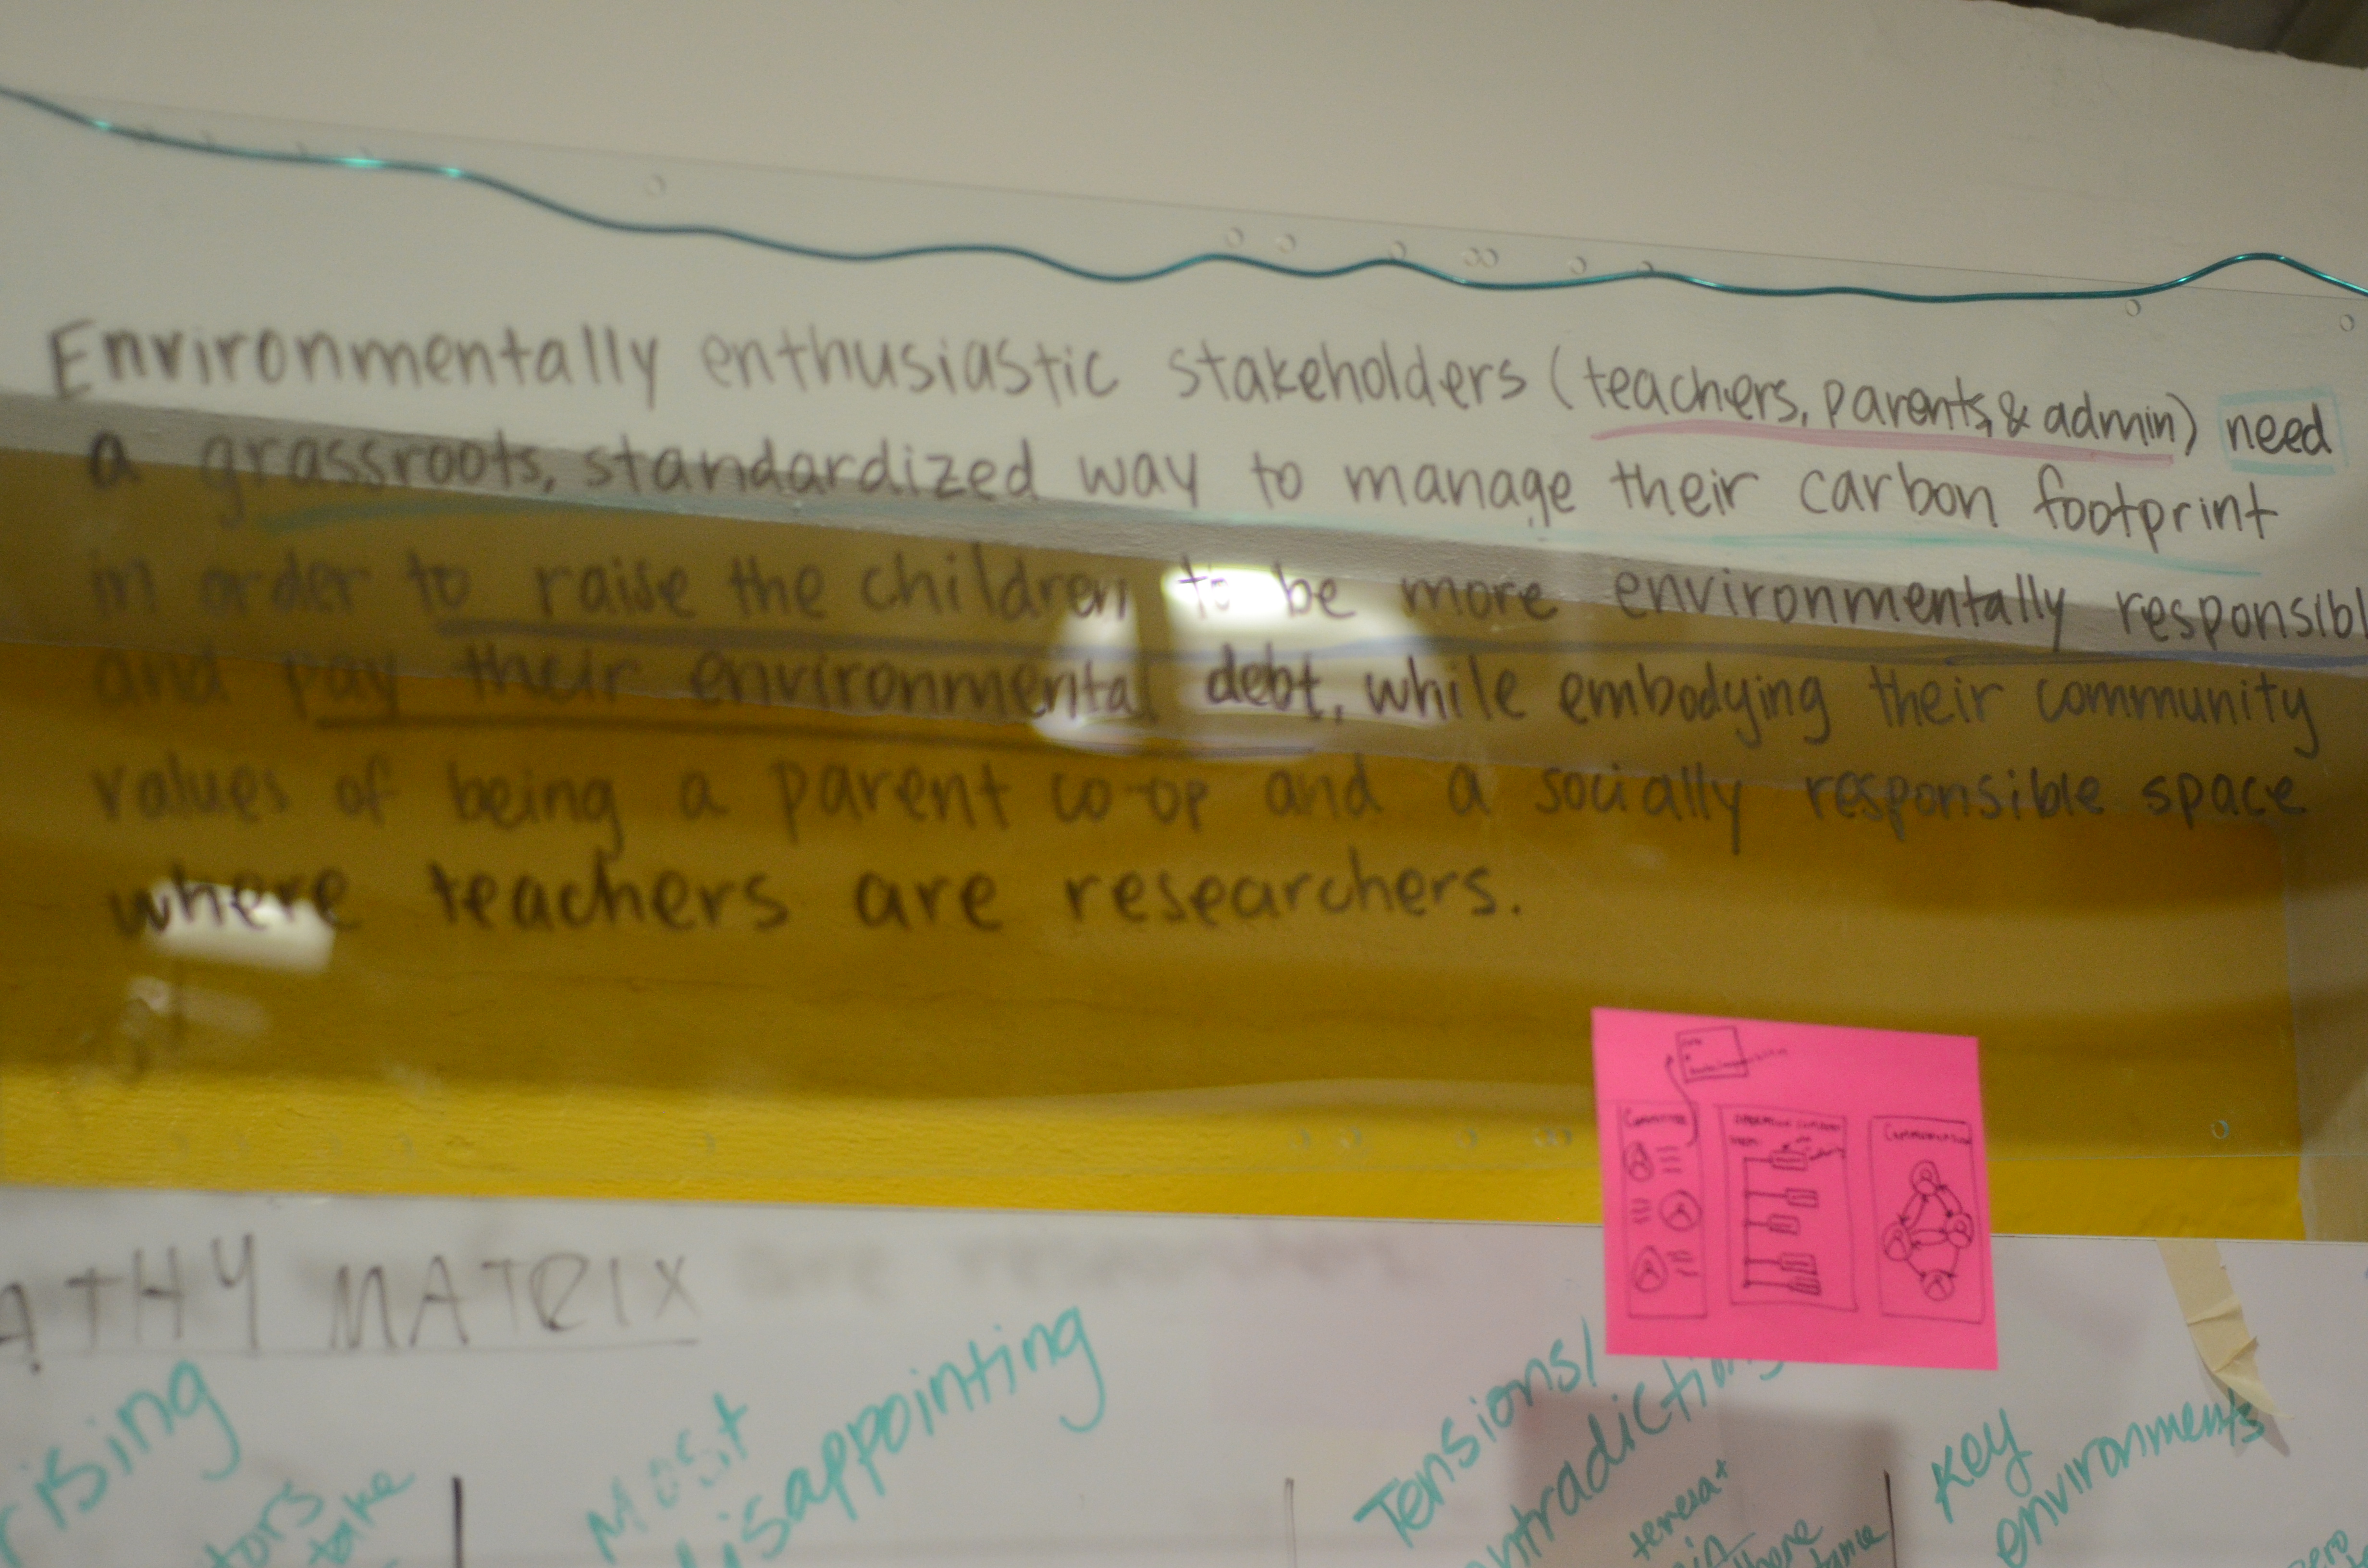 Environmentally enthusiastic stakeholders (teachers, parents, & admin) need
a grassroots, standardized way to manage their carbon footprint
in order to raise the children to be more environmentally responsibl
and pay their environmental debt, while embodying their community
values of being a parent co-op and a socially responsible space
where teachers are researchers.
Committee
Communication
ATHY MATRIX
rising
tors
take
Most
disappointing
Tensions/
ntradictions
teresa+
Key
environments